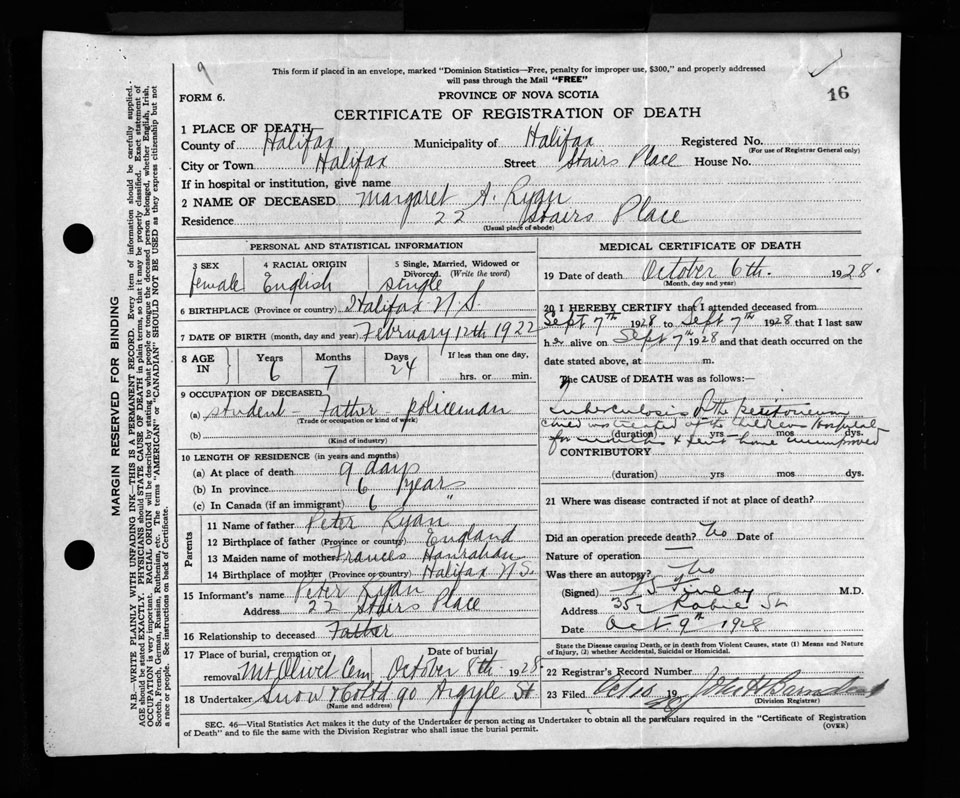 9
This form if placed in an envelope, marked "Dominion Statistics—Free, penalty for improper use, $300," and properly addressed
will pass through the Mail "FREE"
16
FORM 6.
PROVINCE OF NOVA SCOTIA
CERTIFICATE OF REGISTRATION OF DEATH
1 PLACE OF DEATH
County of Halifax Municipality of Halifax Registered No.
(For use of Registrar General only)
City or Town Halifax Street Stairs Place House No.
If in hospital or institution, give name
2 NAME OF DECEASED Margaret A. Ryan
Residence 22 Stairs Place
(Usual place of abode)
PERSONAL AND STATISTICAL INFORMATION
3 SEX 4 RACIAL ORIGIN 5 Single, Married, Widowed or
Divorced. (Write the word)
female English single
6 BIRTHPLACE (Province or country) Halifax N S.
7 DATE OF BIRTH (month, day and year) February 12th 1922
8 AGE IN Years Months Days If less than one day,
6 7 24 hrs. or min.
9 OCCUPATION OF DECEASED
(a) student – Father – policeman
(Trade or occupation or kind of work)
(b)
(Kind of industry)
10 LENGTH OF RESIDENCE (in years and months)
(a) At place of death 9 days
(b) In province 6 years
(c) In Canada (if an immigrant) 6 "
Parents
11 Name of father Peter Ryan
12 Birthplace of father (Province or country) England
13 Maiden name of mother Frances Hanrahan
14 Birthplace of mother (Province or country) Halifax N S.
15 Informant's name Peter Ryan
Address 22 Stairs Place
16 Relationship to deceased Father
17 Place of burial, cremation or Date of burial
removal Mt Olivet Cem October 8th 1928
18 Undertaker Snow & Co Ltd 90 Argyle St
(Name and address)
MEDICAL CERTIFICATE OF DEATH
19 Date of death October 6th. 1928.
(Month, day and year)
20 I HEREBY CERTIFY that I attended deceased from
Sept 7th 1928 to Sept 7th 1928 that I last saw
her alive on Sept 7th 1928 and that death occurred on the
date stated above, at m.
The CAUSE of DEATH was as follows:—
Tuberculosis of the Peritoneum
child was treated at the Childrens Hospital
(duration) yrs mos dys.
for months & sent home unimproved
CONTRIBUTORY
(duration) yrs mos dys.
21 Where was disease contracted if not at place of death?
Did an operation precede death? No Date of
Nature of operation —
Was there an autopsy? No
(Signed) Finlay M.D.
Address 352 Robie St
Date Oct 9th 1928
State the Disease causing Death, or in death from Violent Causes, state (1) Means and Nature
of Injury, (2) whether Accidental, Suicidal or Homicidal.
22 Registrar's Record Number
23 Filed Oct 10 1928 John
(Division Registrar)
SEC. 46—Vital Statistics Act makes it the duty of the Undertaker or person acting as Undertaker to obtain all the particulars required in the "Certificate of Registration
of Death" and to file the same with the Division Registrar who shall issue the burial permit.
(OVER)
MARGIN RESERVED FOR BINDING
N.B.—WRITE PLAINLY WITH UNFADING INK—THIS IS A PERMANENT RECORD. Every item of information should be carefully supplied.
AGE should be stated EXACTLY. PHYSICIANS should STATE CAUSE OF DEATH in plain terms, so that it may be properly classified. Exact statement of
OCCUPATION is very important. RACIAL ORIGIN will be described by stating to what people or tongue the deceased person belonged, whether English, Irish,
Scotch, French, German, Russian, Ruthenian, etc. The terms "AMERICAN" or "CANADIAN" SHOULD NOT BE USED as they express citizenship but not
a race or people. See instructions on back of Certificate.